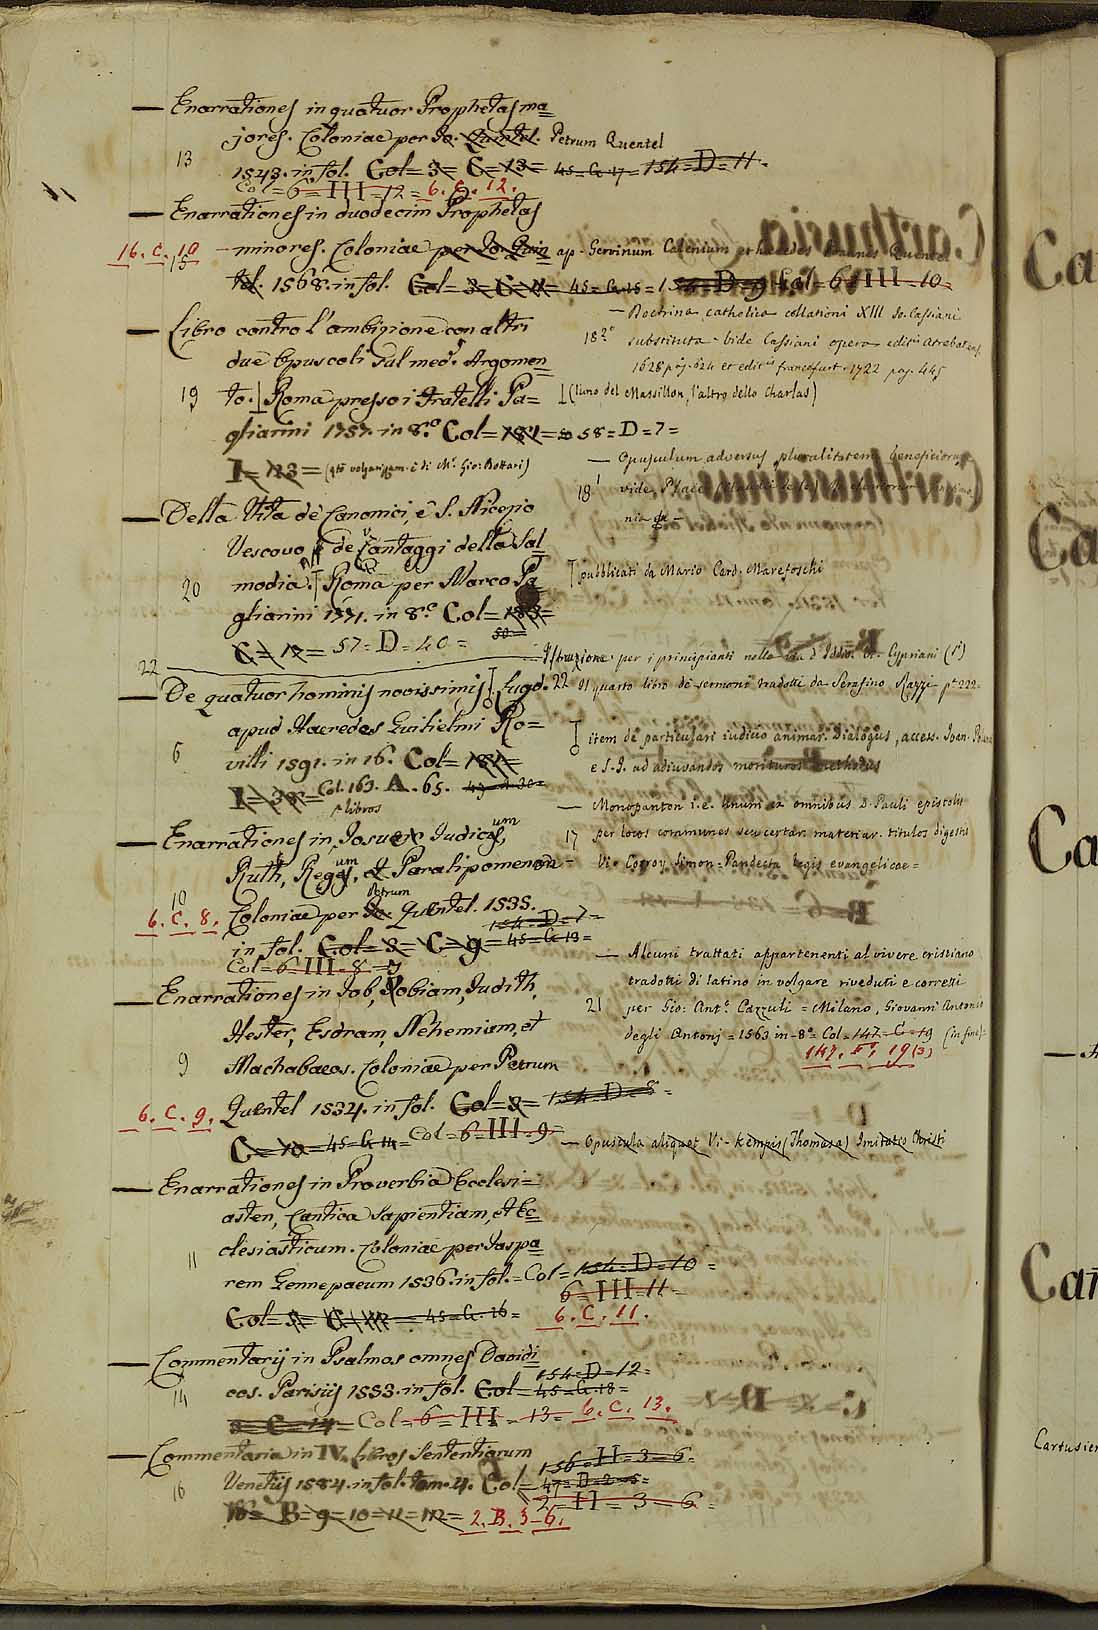 — Enarrationes in quatuor Prophetas ma=
jores. Coloniae per Jo. Quintel. Petrum Quentel
13
1543. in fol. Col= 3= C= 13= 45= C. 17= 154= D= 11.
Col= 6= III= 12= 6. C. 12.
— Enarrationes in duodecim Prophetas
16. C. 10 minores. Coloniae per Jo. Quin ap. Gervinum Calenium et haeredes Joannis Quentel
15
tel. 1568. in fol. Col= 3= C= 11= 45= C. 15= 154= D= 9 Col= 6= III= 10=
— Libro contro l'ambizione con altri
due Opuscoli sul med.º Argomen=
19 to. Roma presso i Fratelli Pa=
gliarini 1757. in 8.º Col= 181= 58= D= 7=
I= 123= (qto volgarizzam. è di Mr. Gio: Bottari)
— Della Vita de' Canonici, e S. Nicezio
Vescovo de' Vantaggi della Sal
20 modia. Roma per Marco Pa
gliarini 1771. in 8.º Col= 183=
50=
C= 12= 57= D= 40=
22
— De quatuor hominis novissimis Lugd.
apud Haeredes Guilielmi Ro=
6 villi 1591. in 16. Col= 181=
I= 38= Col. 163. A. 65. 49
libros
— Enarrationes in Josue Judicum,
Ruth, Regum, et Paralipomenon
10
6. C. 8. Coloniae per Jo. Petrum Quentel. 1535.
154= D= 7=
in fol. Col= 3= C= 9= 45= C. 13=
Col= 6= III= 8=
— Enarrationes in Iob, Tobiam, Judith,
Hester, Esdram, Nehemiam, et
9 Machabaeos. Coloniae per Petrum
6. C. 9. Quentel 1534. in fol. Col= 3= 154= D= 8=
C= 10= 45= C. 14= Col= 6= III= 9=
— Enarrationes in Proverbia Ecclesi=
asten, Cantica Sapientiam, et Ec=
11 clesiasticum. Coloniae per Jaspa=
rem Gennepaeum 1536. in fol.= Col= 154= D= 10=
6= III= 11=
Col= 45= C. 16= 6. C. 11.
— Commentarij in Psalmos omnes Davidi=
154= D= 12=
14 cos. Parisijs 1553. in fol. Col= 45= C. 18=
3= C= 14= Col= 6= III= 13= 6. C. 13.
— Commentaria in IV. libros Sententiarum
156= H= 3= 6.
16 Venetijs 1584. in fol. tom. 4. Col= 47= D= 2= 5=
2= H= 3= 6=
B= 9= 10= 11= 12= 2. B. 3-6.
— Doctrina catholica collationi XIII Jo. Cassiani
18 substituta vide Cassiani opera
1628 pag. 624 et francofurt. 1722 pag. 445
(l'uno del Massillon, l'altro dello Charlas)
— Opusculum adversus pluralitatem beneficiorum
18 vide
pubblicati da Mario Card. Marefoschi
Istruzione per i principianti nella via d'Iddio. V. Cypriani (S.)
22 Il quarto libro de' sermoni tradotti da Serafino Razzi p. 222.
item de particulari iudicio animar. Dialogus, access. Joan.
e S. J. ad adiuvandos morituros
— Monopanton i.e. unum ex omnibus D. Pauli epistolis
17 per locos communes seu certar. materiar. titulos digestis
Vi. Corroy Simon= Pandecta legis evangelicae=
— Alcuni trattati appartenenti al vivere cristiano
tradotti di latino in volgare riveduti e corretti
21 per Gio: Ant.º Cazzuli= Milano, Giovanni Antonio
degli Antonj= 1563 in-8º= Col= 147= C= 19 (in fine)=
147. F. 19(3)
— Opuscula aliquot Vi- Kempis (Thomasa) Imitatio Christi
Ca
Ca
Ca
Car
Cartusien